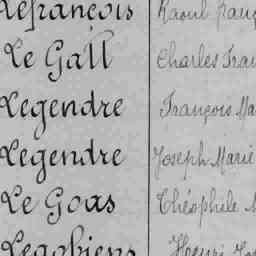 Lefrançois Raoul
Le Gall Charles
Legendre François
Legendre Joseph Marie
Le Goas Théophile
Legobien Henri